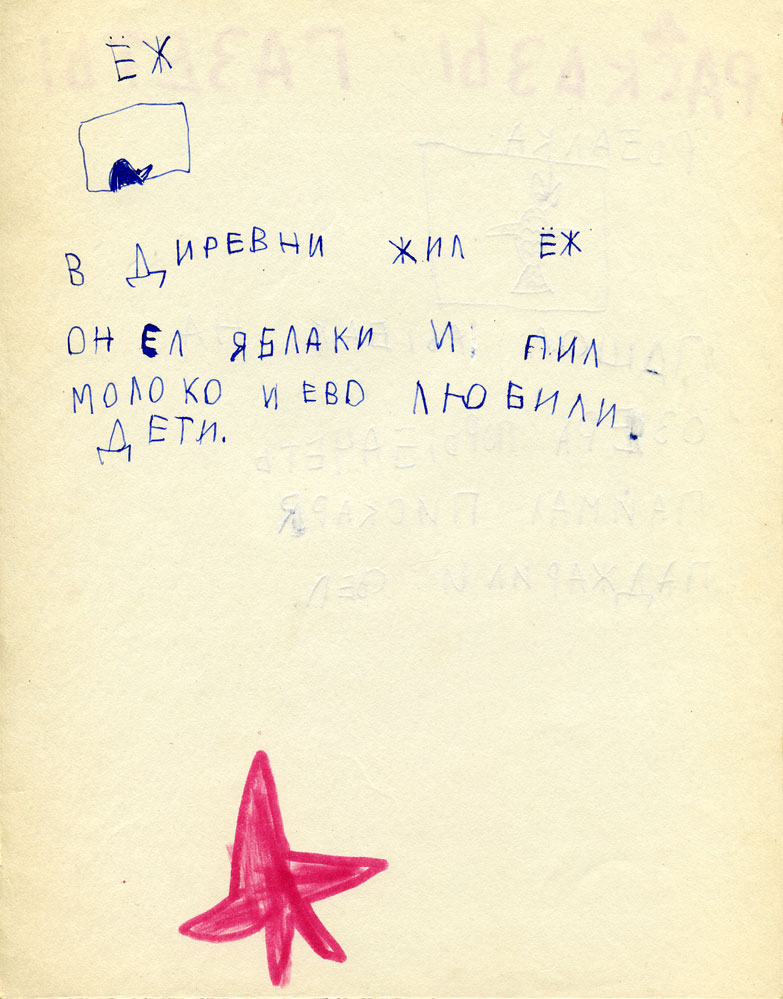 ЁЖ
В ДИРЕВНИ ЖИЛ ЁЖ
ОН ЕЛ ЯБЛАКИ И ПИЛ
МОЛОКО И ЕВО ЛЮБИЛИ
ДЕТИ.